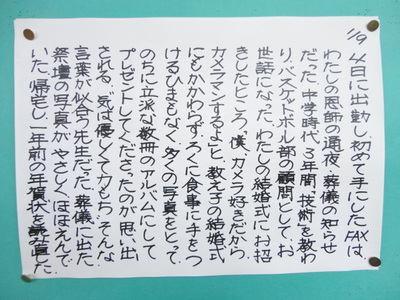 1/9 4日に出勤し、初めて手にしたFAXは、
わたしの恩師の通夜、葬儀の知らせ
だった。中学時代、3年間、"技術"を教わ
り、バスケットボール部の顧問として、お
世話になった。わたしの結婚式にお招
きしたところ、「僕、カメラ好きだから、
カメラマンするよ」と、教え子の結婚式
にもかかわらず、ろくに食事に手をつ
けるひまもなく、多くの写真をとって、
のちに立派な数冊のアルバムにして
プレゼントしてくださったのが思い出
される。"気は優しくて力もち"そんな
言葉が似合う先生だった。葬儀に出た。
祭壇の写真が、やさしくほほえんで
いた。帰宅し、一年前の年賀状を読み直した。